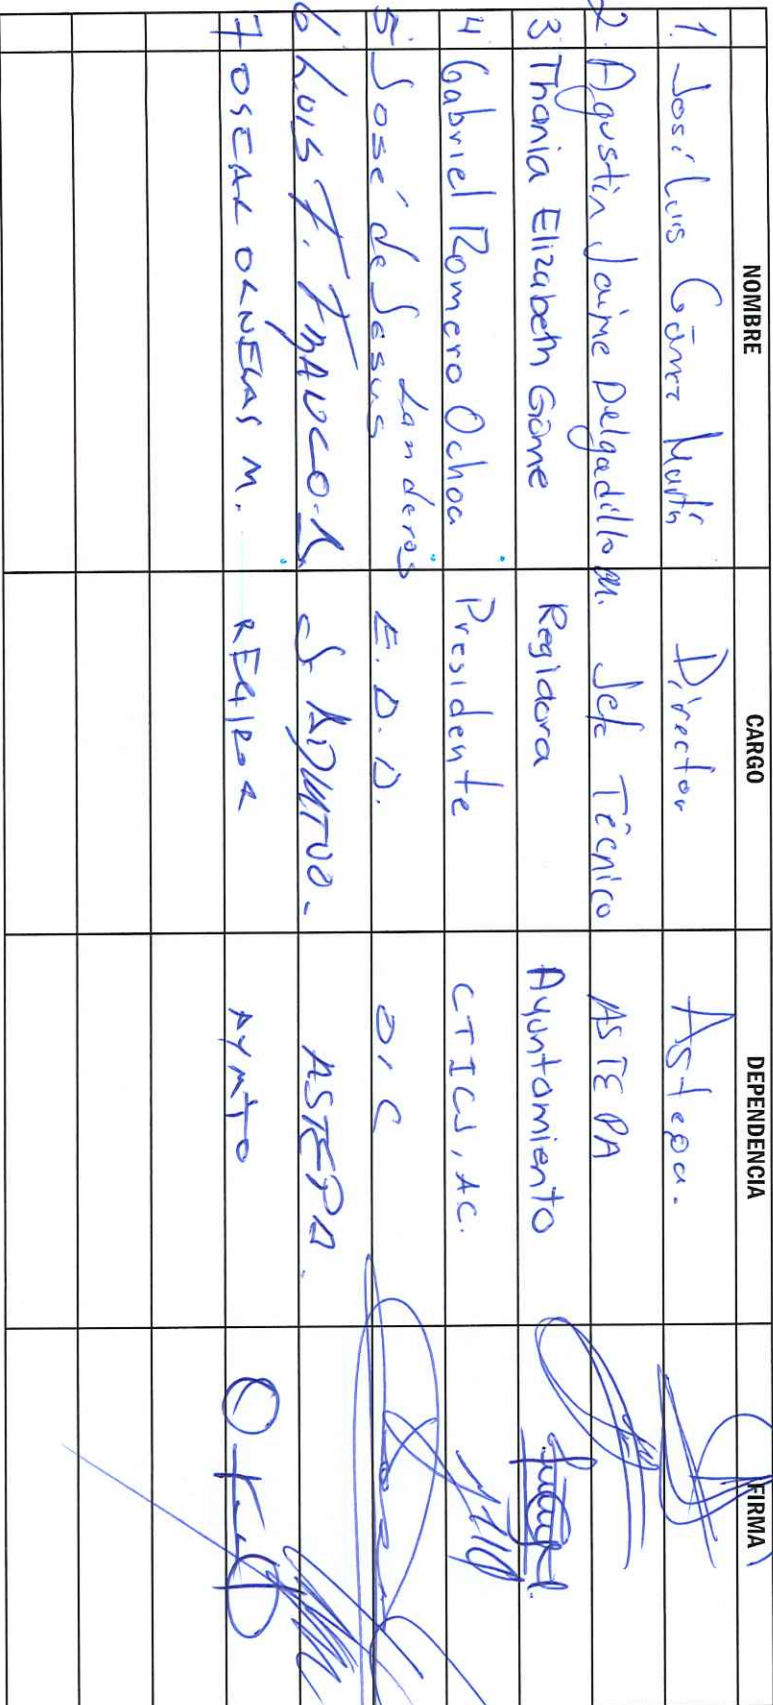 NOMBRE CARGO DEPENDENCIA FIRMA
1. José Luis Gómez Martín Director Astepa.
2. Agustín Jaime Delgadillo M. Jefe Técnico ASTEPA
3 Thania Elizabeth Góme Regidora Ayuntamiento
4 Gabriel Romero Ochoa Presidente CTICS, AC.
5. José de Jesus Landeros E.D.D. O.C
6 Luis F. Franco. ASTEPA.
7 OSCAR ORNELAS M. REGIDOR AYMTO